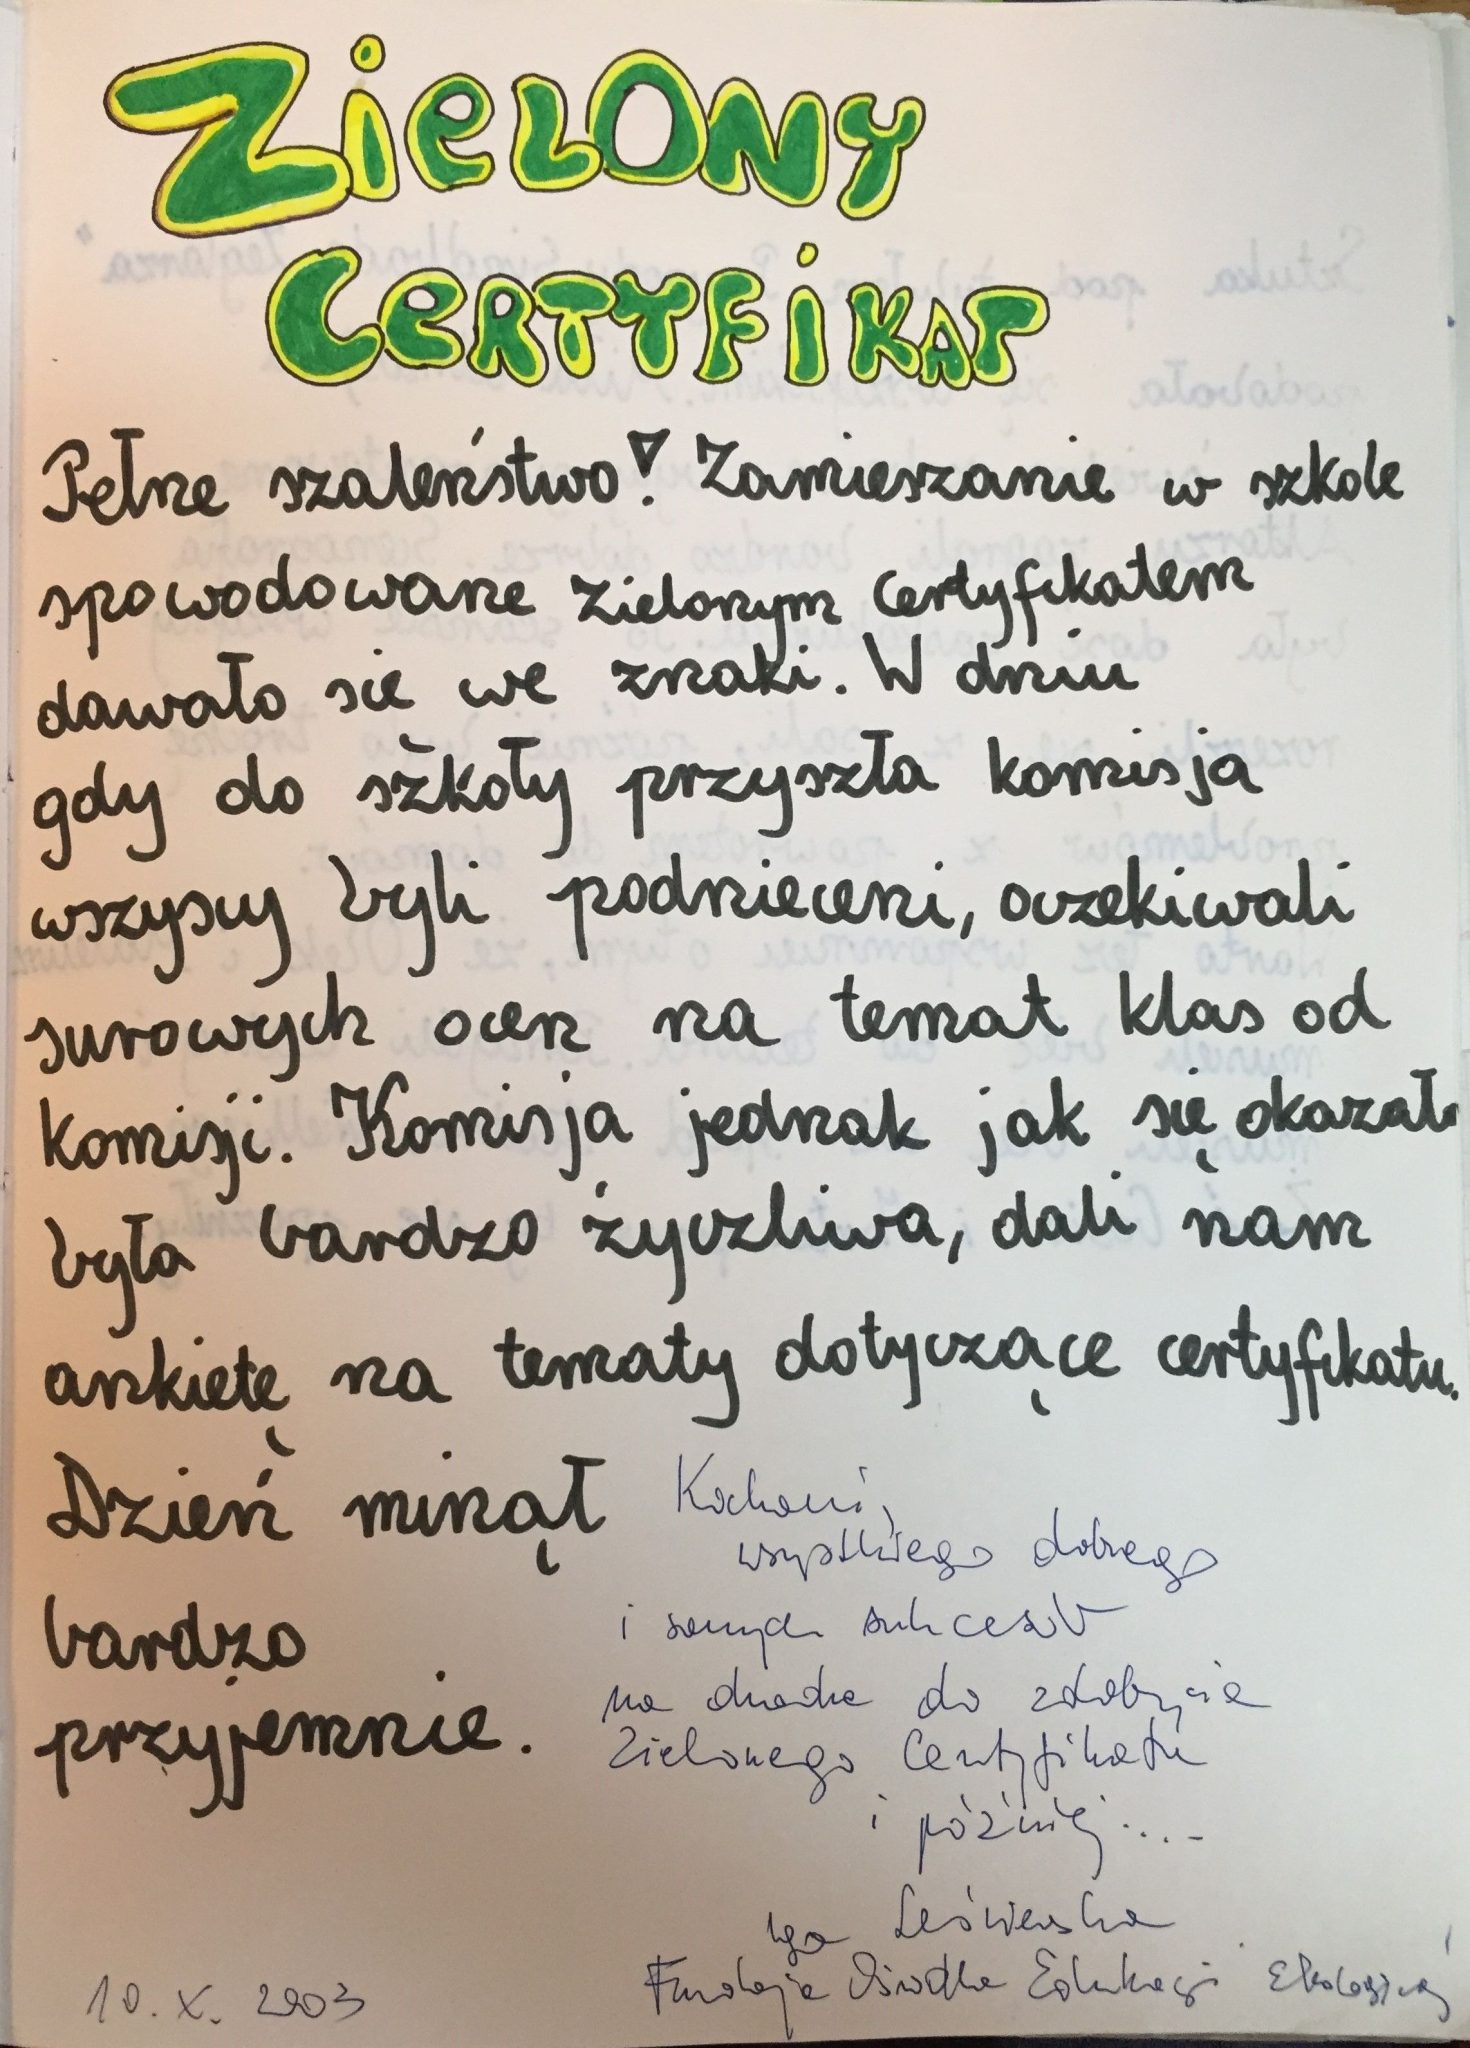 ZiELONY
CERTYFiKAT
Pełne szaleństwo! Zamieszanie w szkole
spowodowane Zielonym Certyfikatem
dawało się we znaki. W dniu
gdy do szkoły przyszła komisja
wszyscy byli podnieceni, oczekiwali
surowych ocen na temat klas od
komisji. Komisja jednak jak się okazało
była bardzo życzliwa, dali nam
ankietę na tematy dotyczące certyfikatu.
Dzień minął
bardzo
przyjemnie.
Kochani,
wszystkiego dobrego
i samych sukcesów
na drodze do zdobycia
Zielonego Certyfikatu
i później....
Iga
Fundacja Ośrodka Edukacji Ekologicznej
10. X. 2003